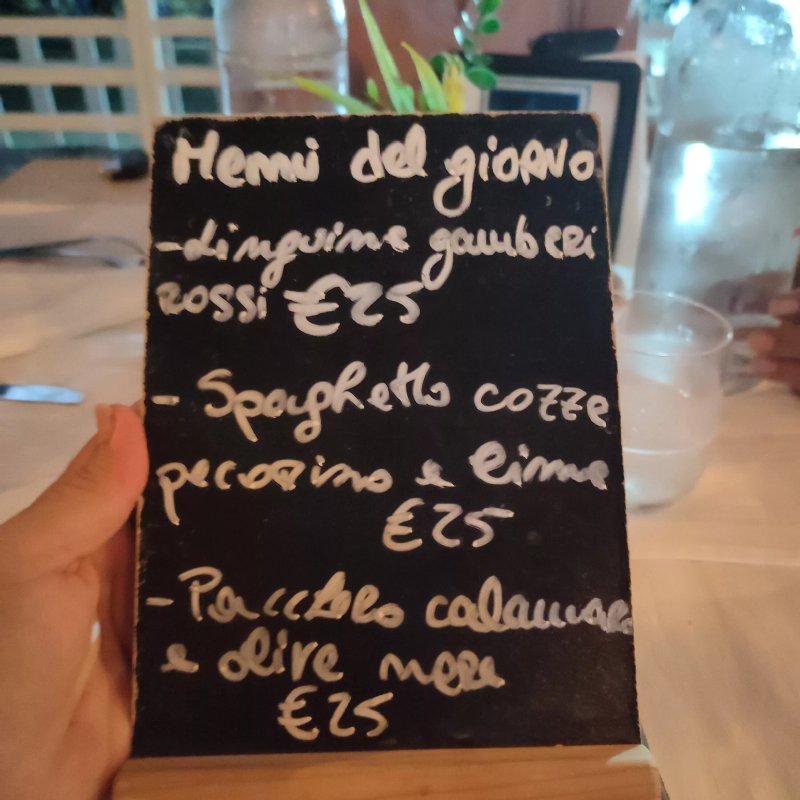 Menù del giorno
- Linguine gamberi
rossi €25
- Spaghetto cozze
pecorino e lime
€25
- Pacchero calamaro
e olive nere
€25